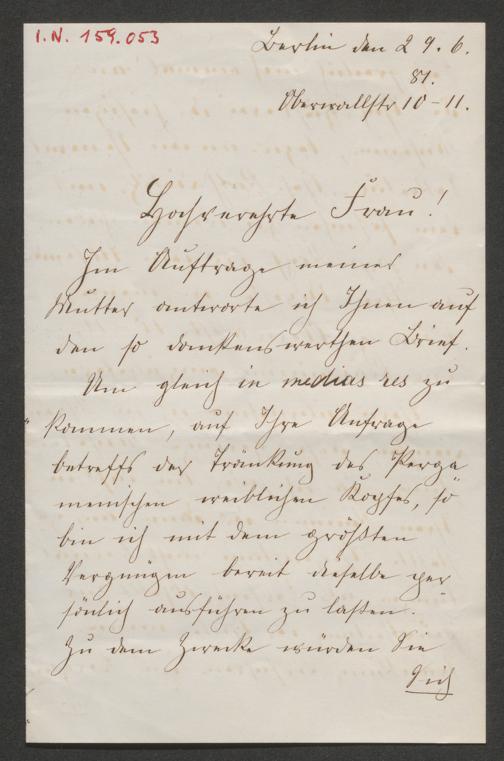 I.N. 159.053
Berlin den 29.6.
81.
Oberwallstr 10-11.
Hochverehrte Frau!
Im Auftrage meiner
Mutter antworte ich Ihnen auf
den so dankenswerthen Brief.
Um gleich in medias res zu
kommen, auf Ihre Anfrage
betreffs der Tränkung des Perga
menischen weiblichen Kopfes, so
bin ich mit dem größten
Vergnügen bereit dieselbe per
sönlich ausführen zu laßen.
Zu dem Zwecke würden Sie
Sich